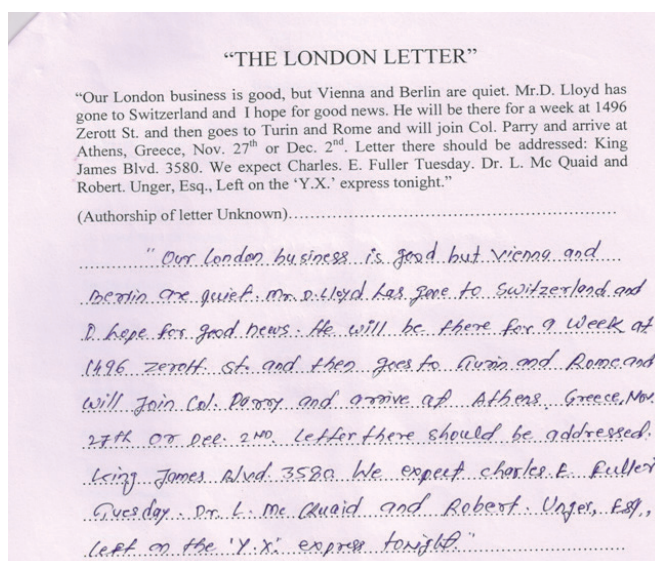 "THE LONDON LETTER"
"Our London business is good, but Vienna and Berlin are quiet. Mr.D. Lloyd has
gone to Switzerland and I hope for good news. He will be there for a week at 1496
Zerott St. and then goes to Turin and Rome and will join Col. Parry and arrive at
Athens, Greece, Nov. 27th or Dec. 2nd. Letter there should be addressed: King
James Blvd. 3580. We expect Charles. E. Fuller Tuesday. Dr. L. Mc Quaid and
Robert. Unger, Esq., Left on the 'Y.X.' express tonight."
(Authorship of letter Unknown)
"Our London business is good but Vienna and
Berlin are quiet. Mr. D. Lloyd has gone to Switzerland and
I hope for good news. He will be there for a week at
1496 Zerott. St. and then goes to Turin and Rome and
will Join Col. Parry and arrive at Athens. Greece, Nov.
27th or Dec. 2ND. Letter there should be addressed.
King James Blvd. 3580. We expect charles. E. Fuller
Tuesday. Dr. L. Mc Quaid and Robert. Unger, Esq.,
left on the 'Y.X.' express tonight."